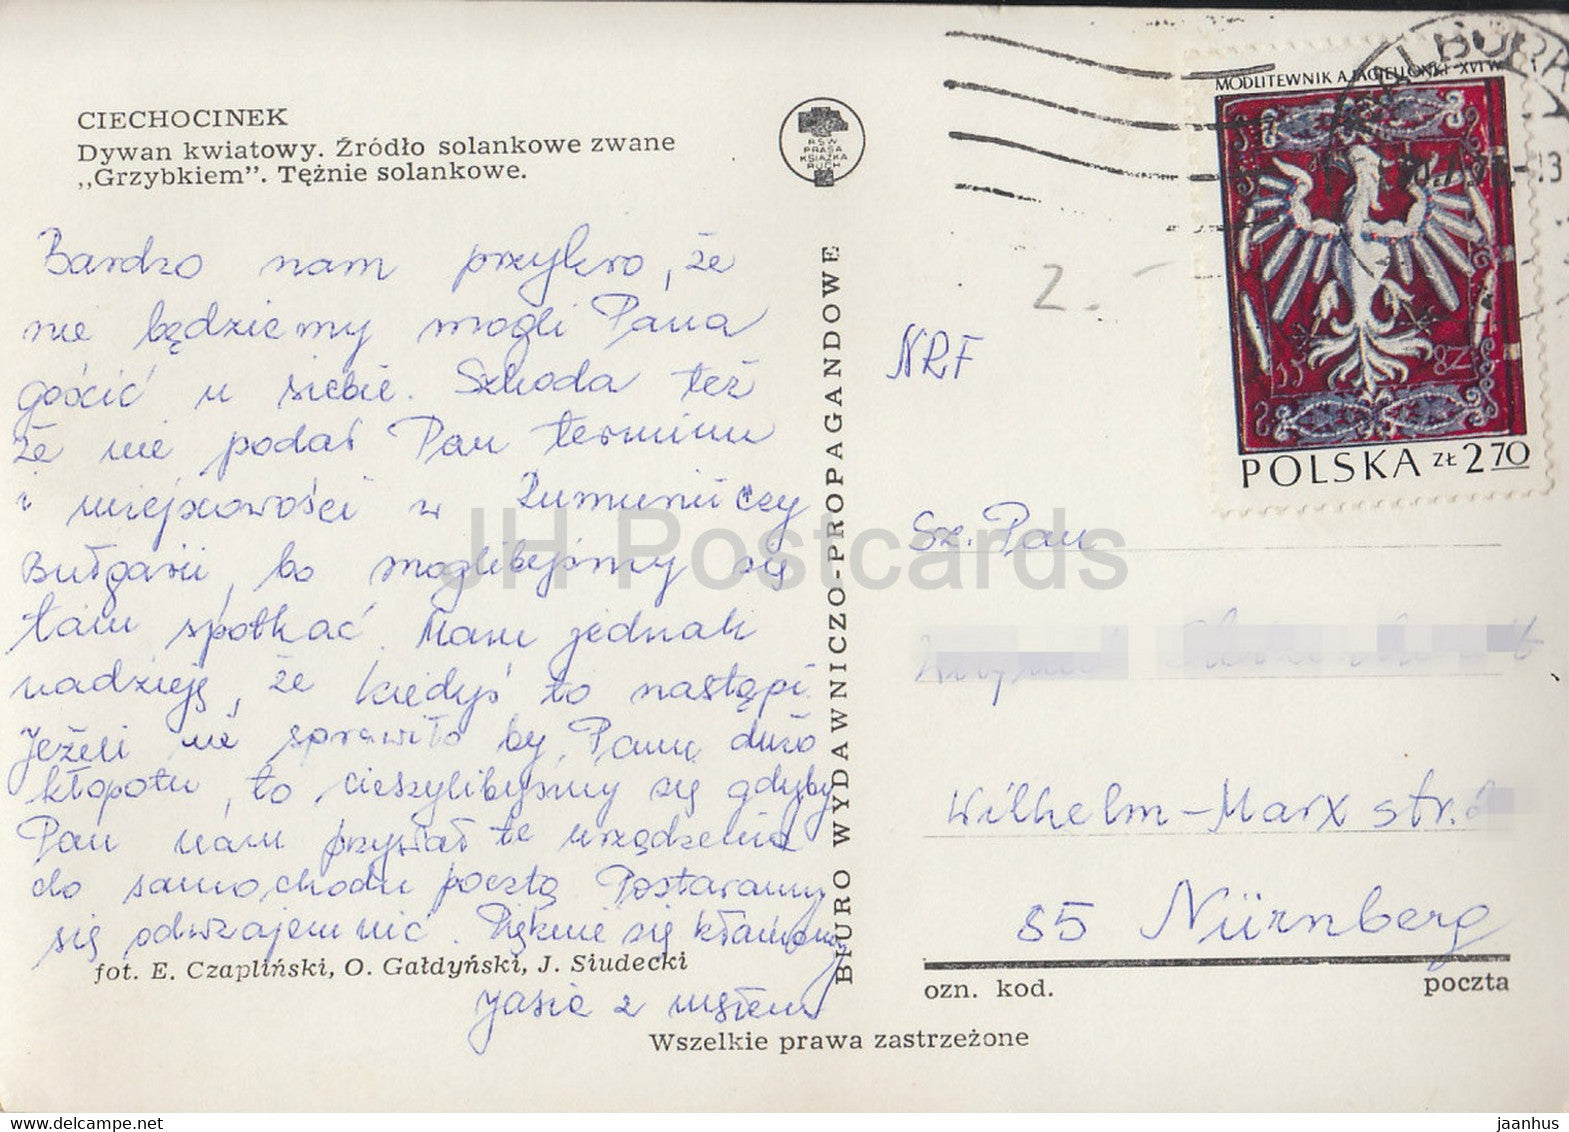 CIECHOCINEK
Dywan kwiatowy. Źródło solankowe zwane
„Grzybkiem”. Tężnie solankowe.
RSW
PRASA
KSIĄŻKA
RUCH
Bardzo nam przykro, że
nie będziemy mogli Pana
gościć u siebie. Szkoda też
że nie podał Pan terminu
i miejscowości w Rumunii czy
Bułgarii, bo moglibyśmy się
tam spotkać. Mam jednak
nadzieję, że kiedyś to nastąpi.
Jeżeli nie sprawiło by Panu dużo
kłopotu, to cieszylibyśmy się gdyby
Pan nam przysłał te urządzenia
do samochodu pocztą. Postaramy
się odwzajemnić. Pięknie się kłaniamy
fot. E. Czapliński, O. Gałdyński, J. Siudecki
z mężem
Wszelkie prawa zastrzeżone
BIURO WYDAWNICZO-PROPAGANDOWE
MODLITEWNIK A. JAGIELLONKI XVI W
15 82
POLSKA ZŁ 2 70
2.
NRF
Sz. Pan
Wilhelm-Marx str.
85 Nürnberg
ozn. kod.
poczta
JH Postcards
www.delcampe.net
jaanhus